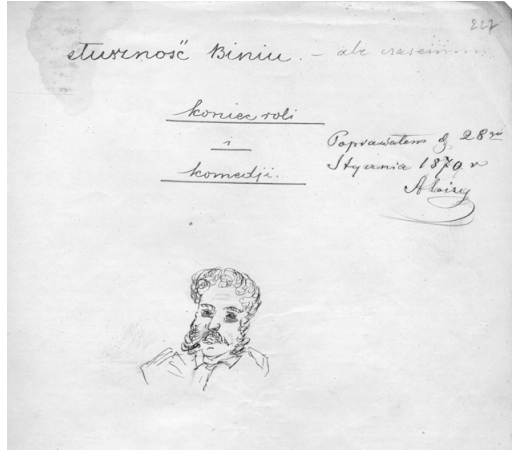 227
słuszność Biniu. – ale czasem
koniec roli
i
komedji.
Poprawiałem d. 28go
Stycznia 1870 r
Aloizy